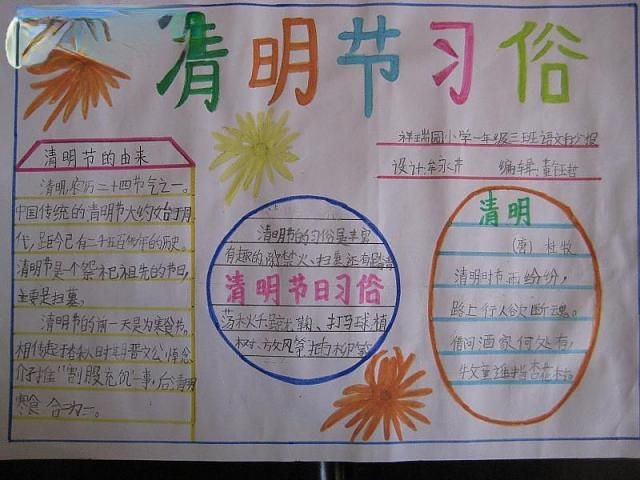 清明节习俗
祥瑞园小学一年级三班语文手抄报
设计:牟永卉 编辑:董钰哲
清明节的由来
清明,农历二十四节气之一。
中国传统的清明节大约始于周
代,距今已有二千五百多年的历史。
清明节是一个祭祀祖先的节日,
主要是扫墓。
清明节的前一天是为寒食节。
相传起于春秋时期晋文公,悼念
介子推“割股充饥”一事,后清明
寒食合二为一。
清明节的习俗是丰富
有趣的,除禁火、扫墓还有踏青
清明节日习俗
荡秋千、踏蹴鞠、打马球、植
树、放风筝、插柳等
清明
(唐) 杜牧
清明时节雨纷纷,
路上行人欲断魂。
借问酒家何处有,
牧童遥指杏花村。